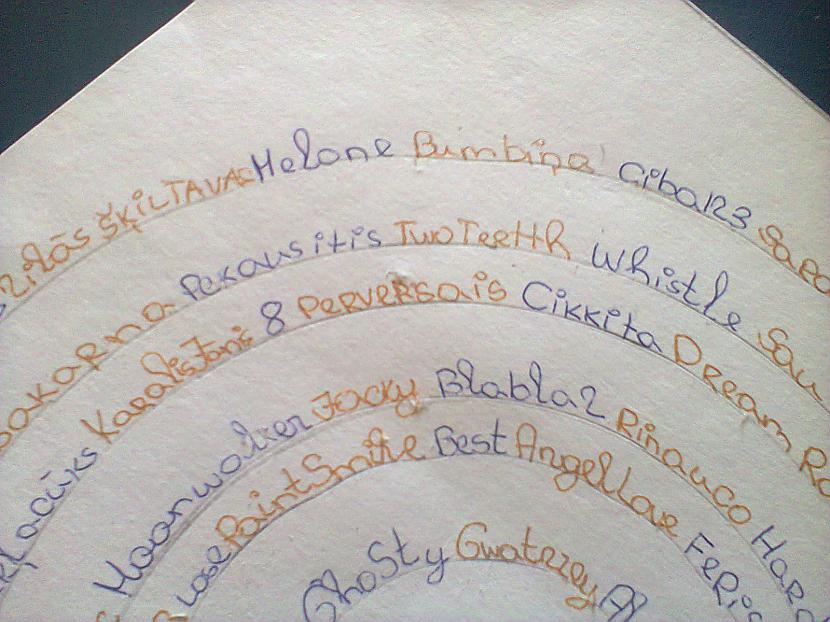 zilās ŠĶILTAVAS Melone Bumbiņa Ciba123
Pekausitis TwoTeetth Whistle Sau
Karalis Janis 8 PERVERSAIS Cikkita Dream
Moonwalker Jacky Blabla2 Rinauco Hard
PaintSmihe Best AngelLove Felis
GhoSty Gwatzzey